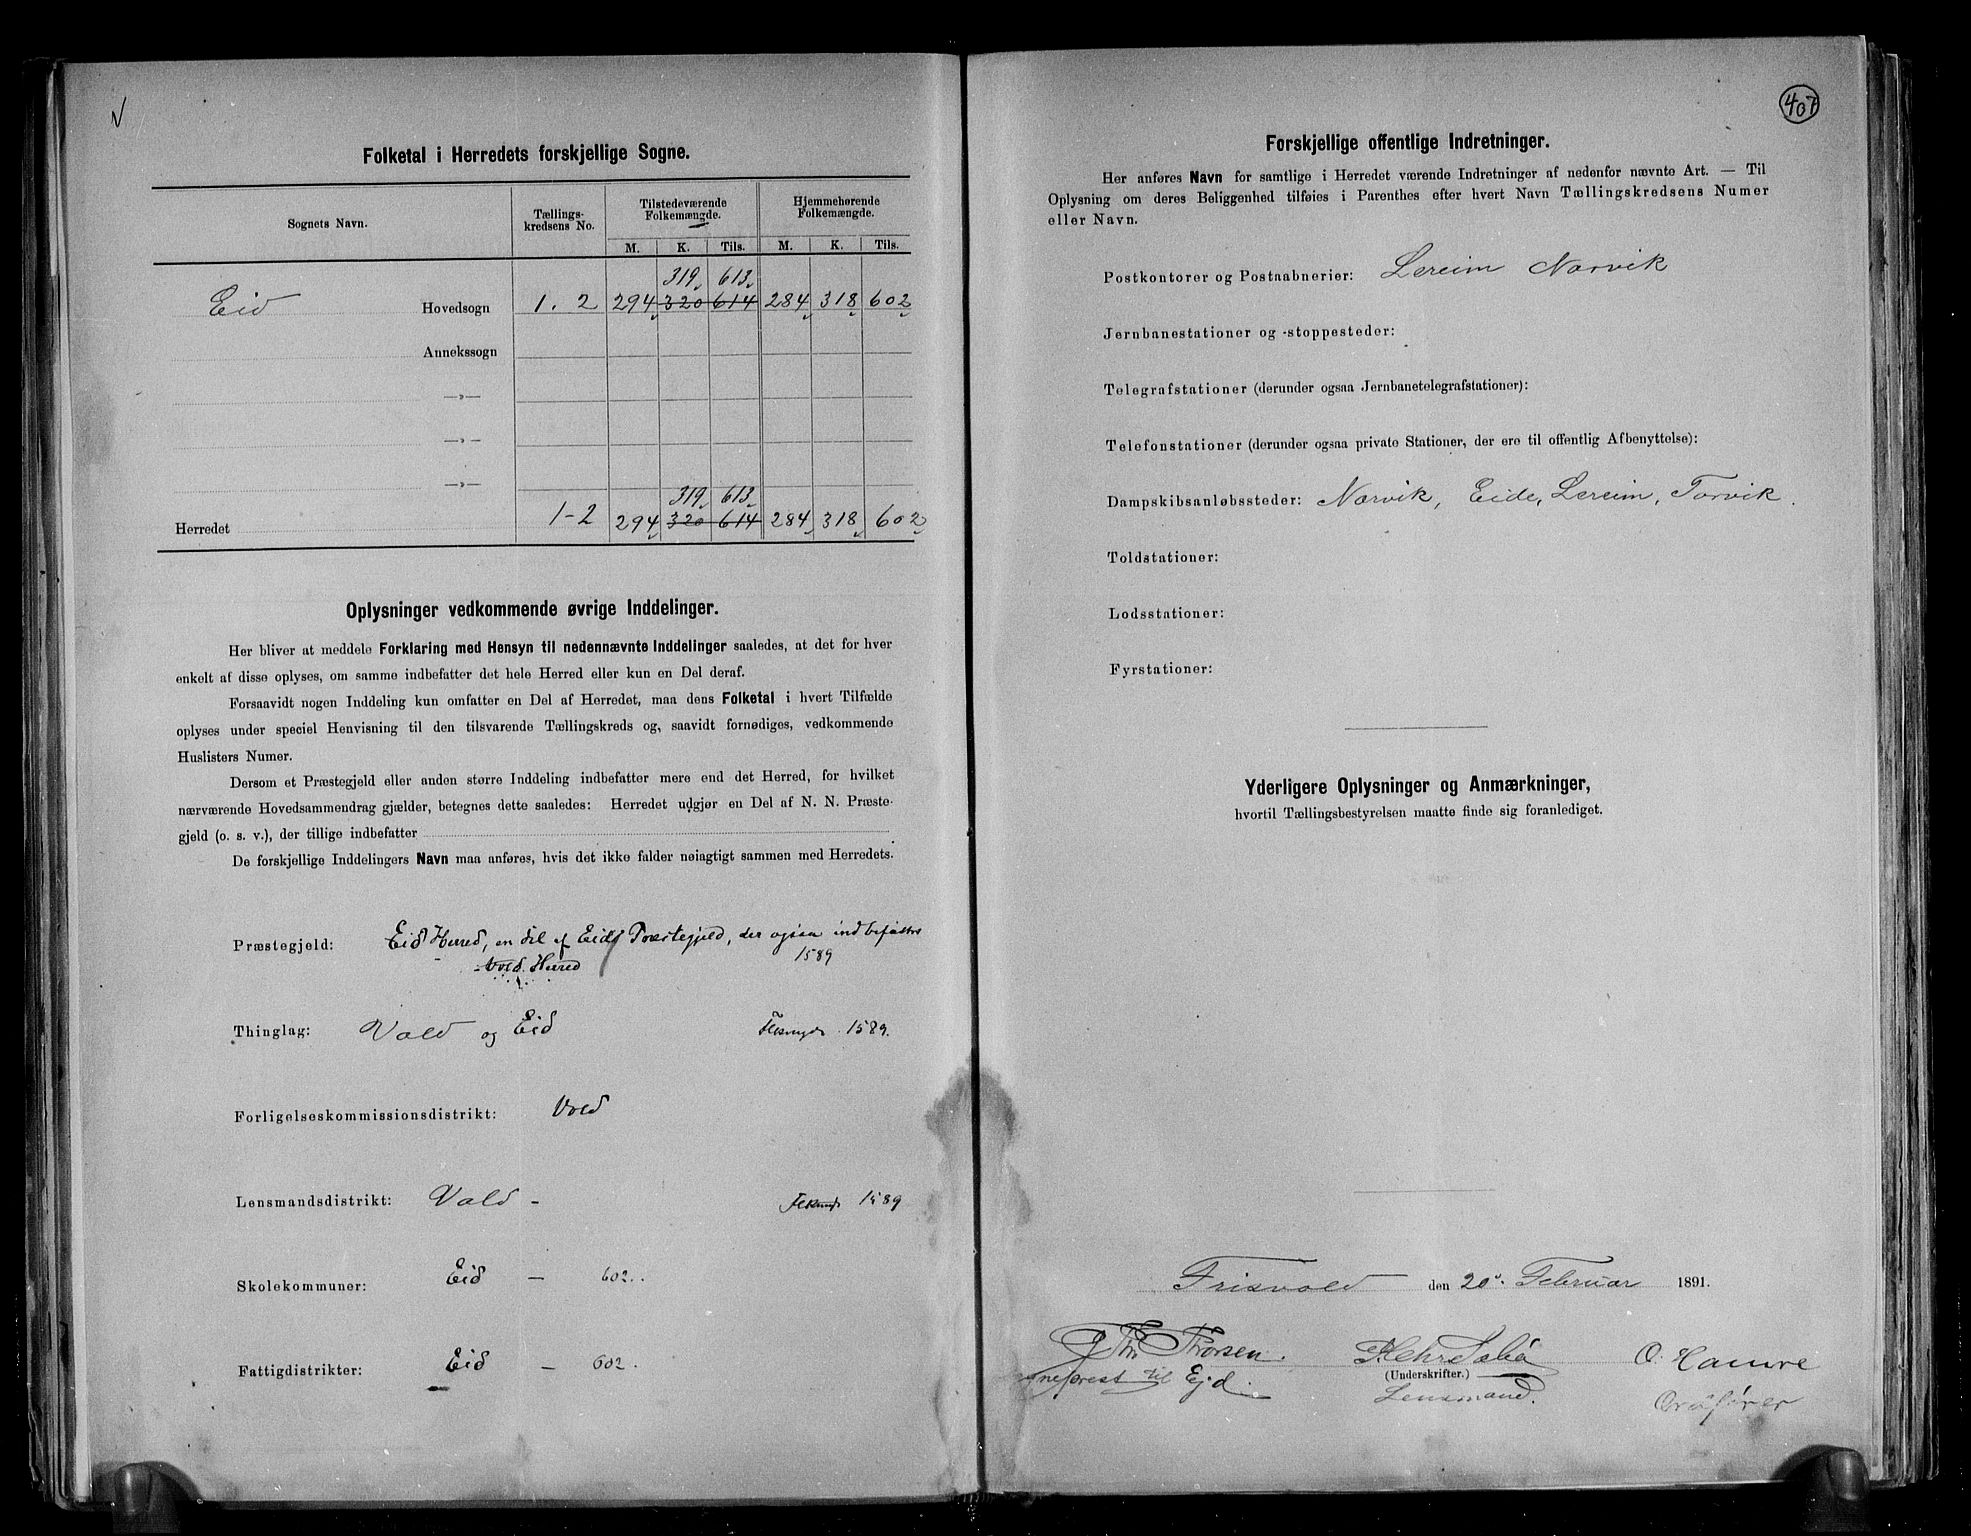 Folketal i Herredets forskjellige Sogne.
Sognets Navn. Tællings-kredsens No. Tilstedeværende Folkemængde. Hjemmehørende Folkemængde.
M. K. Tils. M. K. Tils.
319 613
Eid Hovedsogn 1. 2 294 320 614 284 318 602
Annekssogn
—»—
—»—
—»—
319 613
Herredet 1-2 294 320 614 284 318 602
Oplysninger vedkommende øvrige Inddelinger.
Her bliver at meddele Forklaring med Hensyn til nedennævnte Inddelinger saaledes, at det for hver
enkelt af disse oplyses, om samme indbefatter det hele Herred eller kun en Del deraf.
Forsaavidt nogen Inddeling kun omfatter en Del af Herredet, maa dens Folketal i hvert Tilfælde
oplyses under speciel Henvisning til den tilsvarende Tællingskreds og, saavidt fornødiges, vedkommende
Huslisters Numer.
Dersom et Præstegjeld eller anden større Inddeling indbefatter mere end det Herred, for hvilket
nærværende Hovedsammendrag gjælder, betegnes dette saaledes: Herredet udgjør en Del af N. N. Præste-
gjeld (o. s. v.), der tillige indbefatter
De forskjellige Inddelingers Navn maa anføres, hvis det ikke falder nøiagtigt sammen med Herredets.
Præstegjeld: Eid Herred, en del af Eids Præstegjeld, der ogsaa indbefatter
Vold Herred 1589
Thinglag: Vold og Eid 1589.
Forligelseskommissionsdistrikt: Vold
Lensmandsdistrikt: Vold - 1589
Skolekommuner: Eid — 602.
Fattigdistrikter: Eid — 602.
407
Forskjellige offentlige Indretninger.
Her anføres Navn for samtlige i Herredet værende Indretninger af nedenfor nævnte Art. — Til
Oplysning om deres Beliggenhed tilføies i Parenthes efter hvert Navn Tællingskredsens Numer
eller Navn.
Postkontorer og Postaabnerier: Lereim Norvik
Jernbanestationer og -stoppesteder:
Telegrafstationer (derunder ogsaa Jernbanetelegrafstationer):
Telefonstationer (derunder ogsaa private Stationer, der ere til offentlig Afbenyttelse):
Dampskibsanløbssteder: Norvik, Eide, Lereim, Torvik.
Toldstationer:
Lodsstationer:
Fyrstationer:
Yderligere Oplysninger og Anmærkninger,
hvortil Tællingsbestyrelsen maatte finde sig foranlediget.
Frisvold den 20. Februar 1891.
Th. Thorsen. O. Hamre
(Underskrifter.)
til Ejd. Lensmand. Ordfører